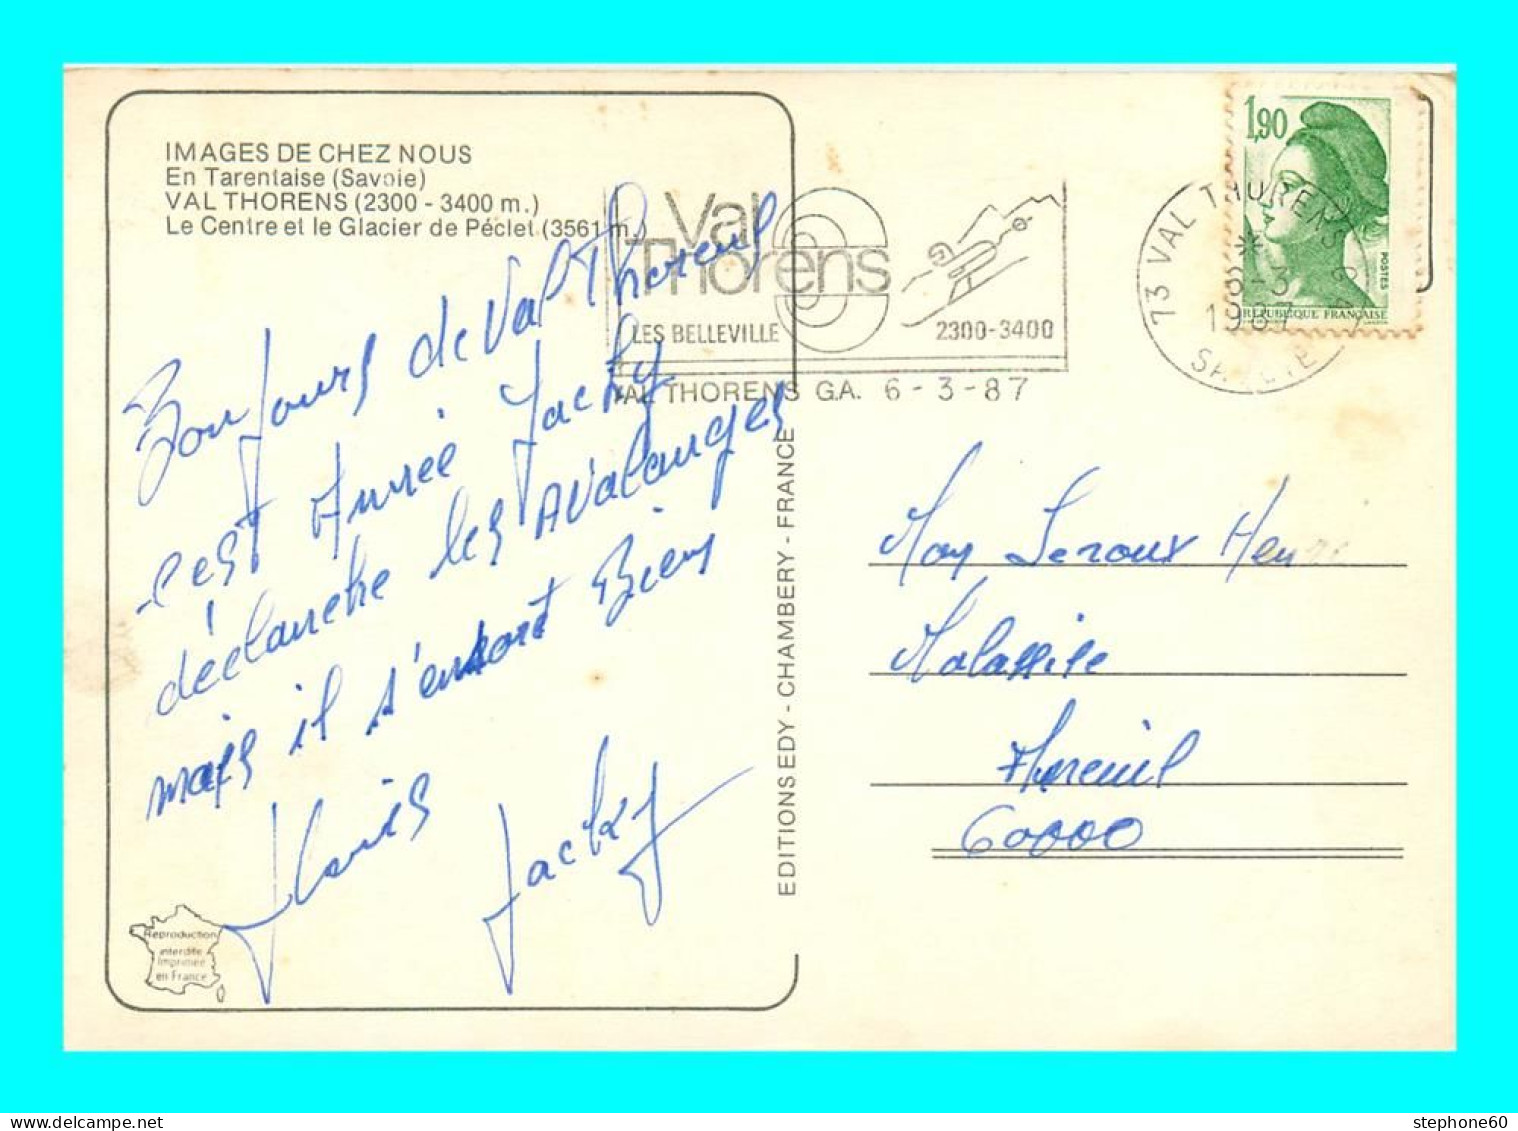 IMAGES DE CHEZ NOUS
En Tarentaise (Savoie)
VAL THORENS (2300 - 3400 m.)
Le Centre et le Glacier de Péclet (3561 m.)
Bonjours de Val Thorens
c'est Année Jacky
déclanche les Avalanges
mais il s'en sort Bien
Jacky
Reproduction
interdite
Imprimée
en France
EDITIONS EDY - CHAMBERY - FRANCE
Val
Thorens
LES BELLEVILLE
2300-3400
VAL THORENS G.A. 6 - 3 - 87
73 VAL THORENS G A
6-3
1987
SAVOIE
1,90
POSTES
REPUBLIQUE FRANÇAISE
Leroux Henri
Malassise
60000
stephone60